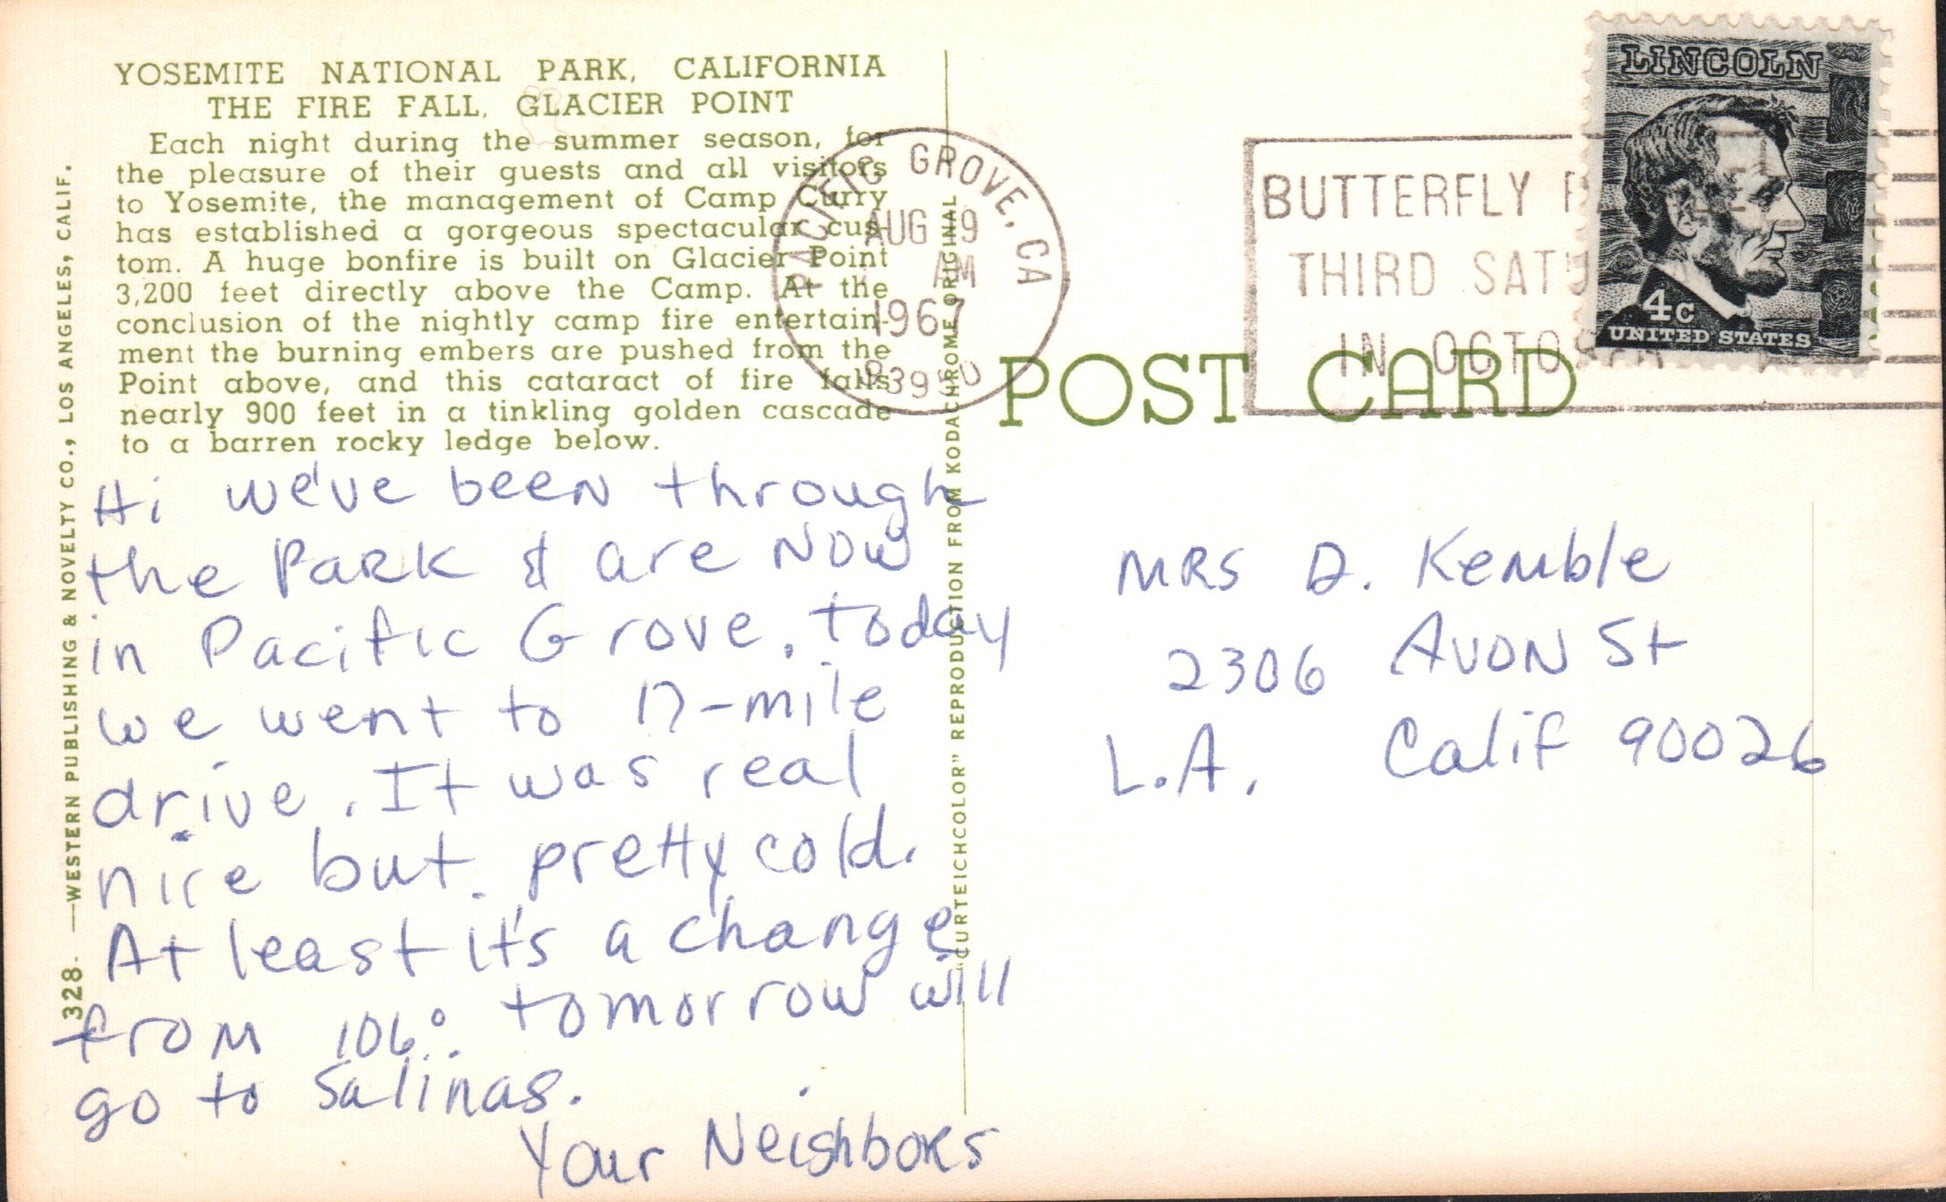 YOSEMITE NATIONAL PARK, CALIFORNIA
THE FIRE FALL, GLACIER POINT
Each night during the summer season, for
the pleasure of their guests and all visitors
to Yosemite, the management of Camp Curry
has established a gorgeous spectacular cus-
tom. A huge bonfire is built on Glacier Point
3,200 feet directly above the Camp. At the
conclusion of the nightly camp fire entertain-
ment the burning embers are pushed from the
Point above, and this cataract of fire falls
nearly 900 feet in a tinkling golden cascade
to a barren rocky ledge below.
328 —WESTERN PUBLISHING & NOVELTY CO., LOS ANGELES, CALIF.
Hi we've been through
the Park & are Now
in Pacific Grove. Today
we went to 17-mile
drive. It was real
nice but pretty cold.
At least it's a change
from 106°. tomorrow will
go to Salinas.
Your Neighbors
"CURTEICHCOLOR" REPRODUCTION FROM KODACHROME ORIGINAL
PACIFIC GROVE, CA
AUG 19
AM
1967
93950
BUTTERFLY
THIRD
IN
LINCOLN
4c
UNITED STATES
POST CARD
MRS D. Kemble
2306 Avon St
L.A. Calif 90026